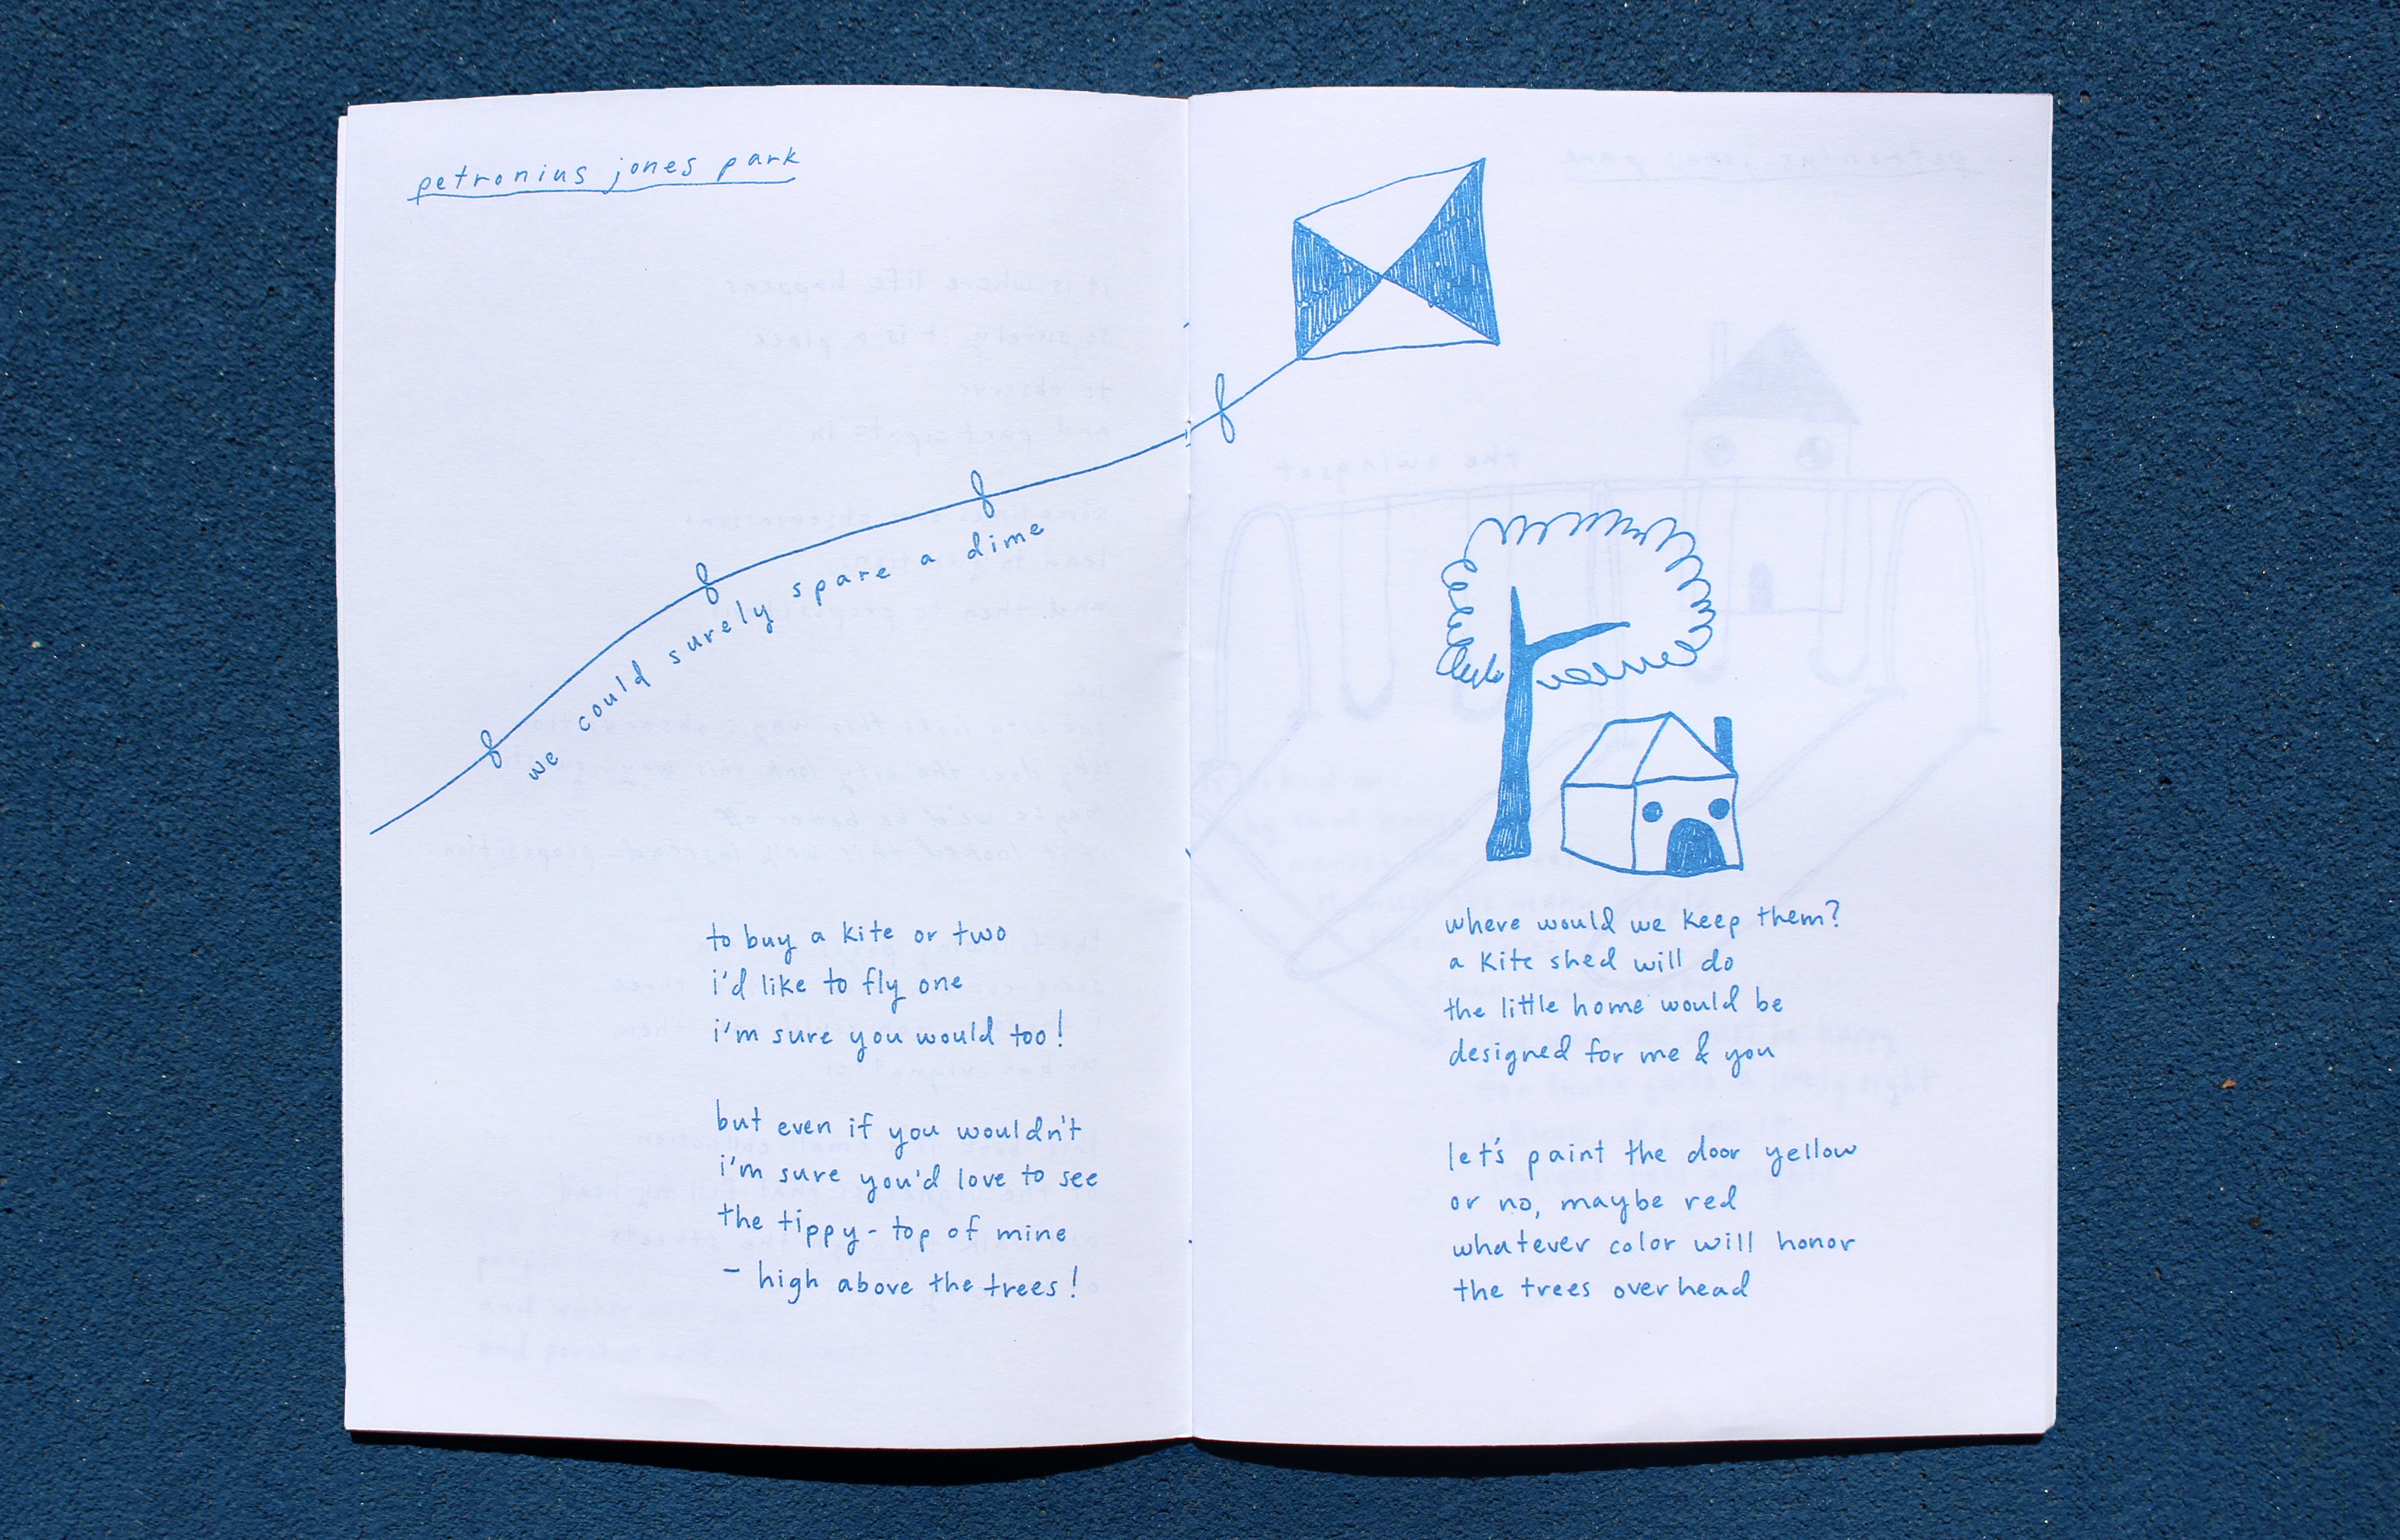 petronius jones park
we could surely spare a dime
to buy a kite or two
i'd like to fly one
i'm sure you would too!
but even if you wouldn't
i'm sure you'd love to see
the tippy-top of mine
- high above the trees!
where would we keep them?
a kite shed will do
the little home would be
designed for me & you
let's paint the door yellow
or no, maybe red
whatever color will honor
the trees overhead